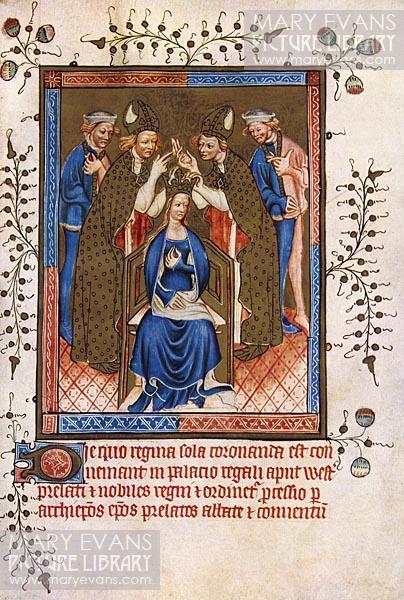 MARY EVANS
PICTURE LIBRARY
www.maryevans.com
Die quo regina sola coronanda est con
ueniant in palacio regali aput west
prelati & nobiles regni & ordinet' pcessio p
archiepos epos prelatos abbate & conuentu
MARY EVANS
PICTURE LIBRARY
www.maryevans.com